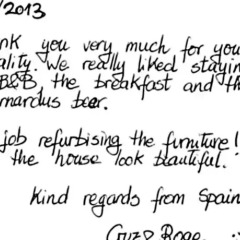 /2013
nk you very much for you
ality. We really liked stayin
B&B, the breakfast and th
rnardus beer.
job refurbising the furniture!
the house look beautiful.
Kind regards from Spain